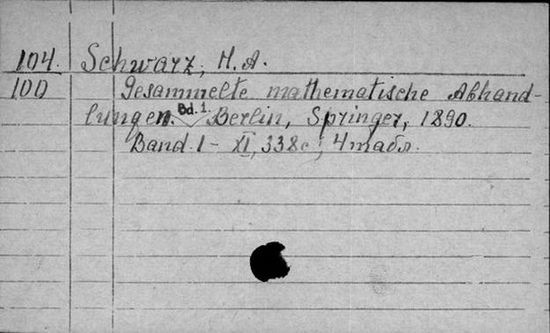 104. Schwarz, H. A.
100 Gesammelte mathematische Abhand-
lungen. Bd. 1. Berlin, Springer, 1890.
Band 1 - XI, 338с., 4 табл.